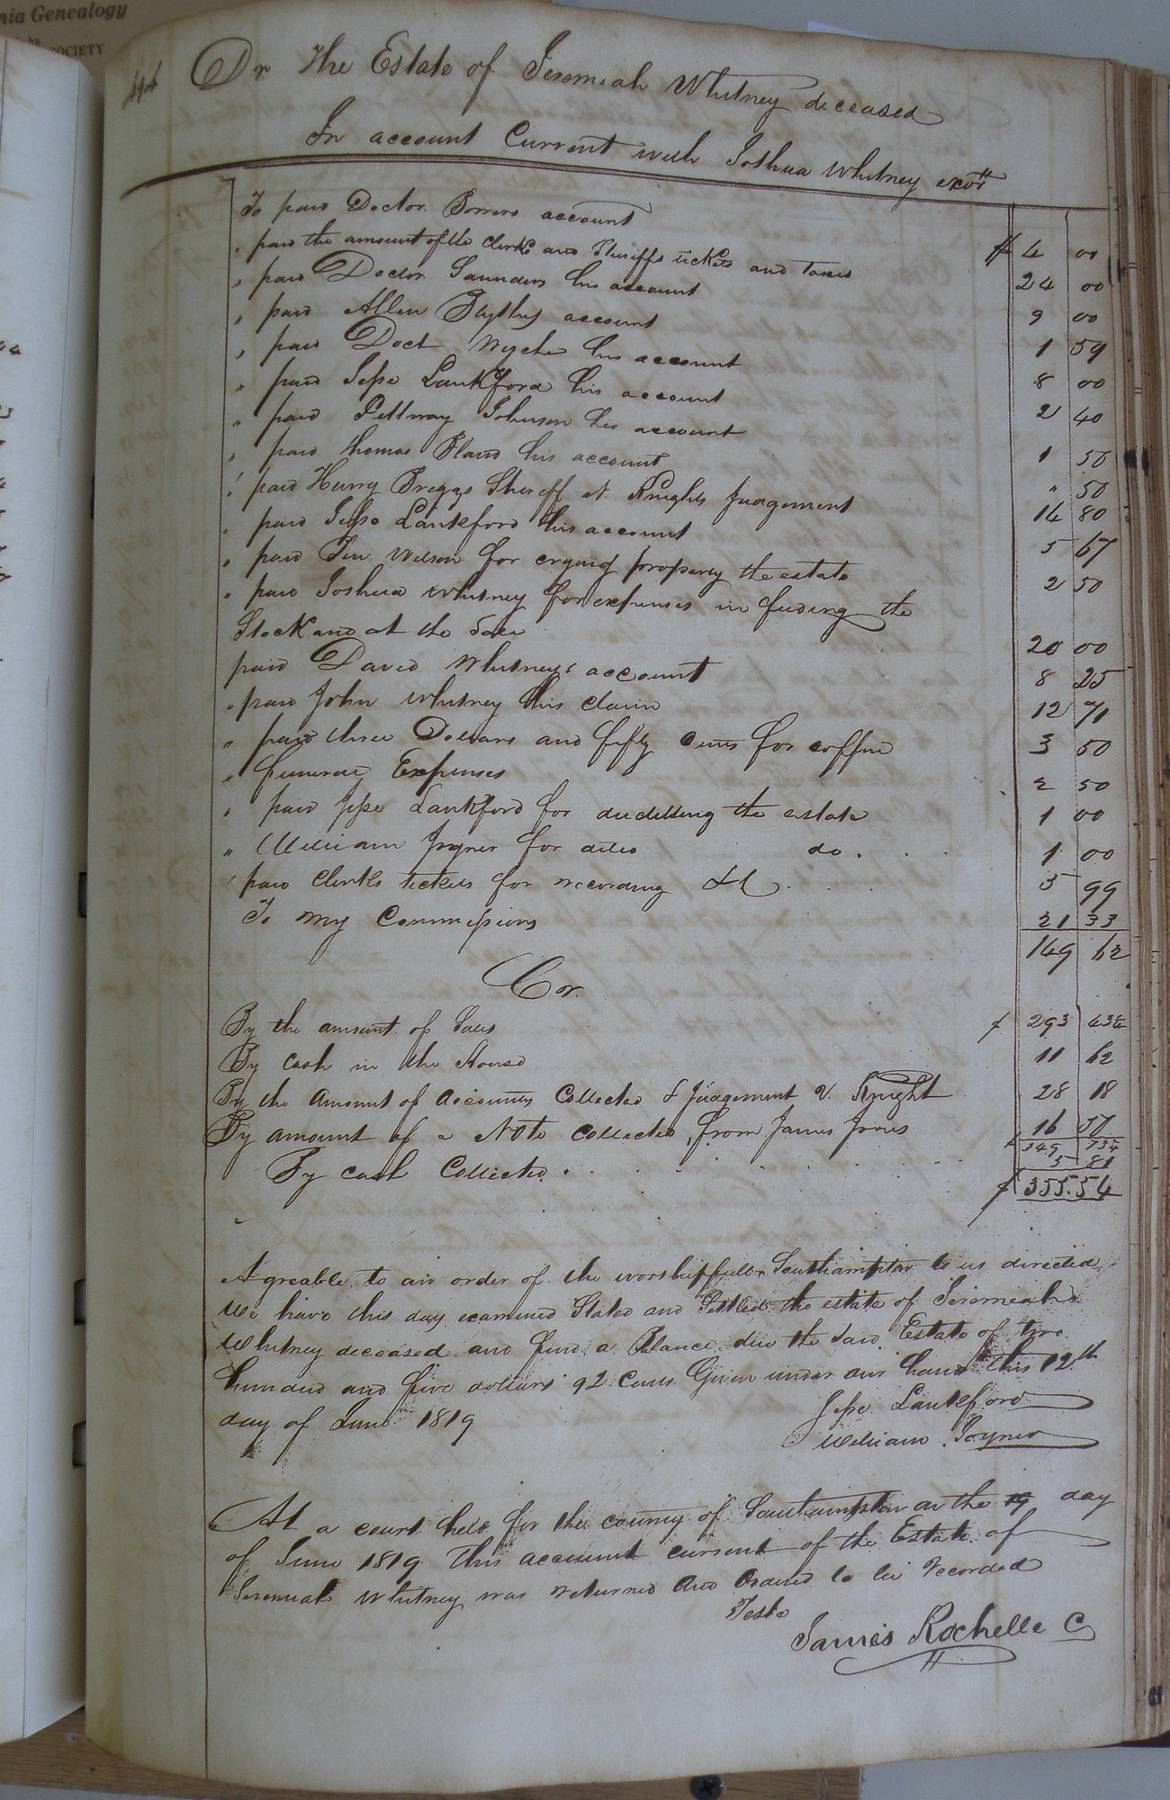 nia Genealogy
SOCIETY
494
Dr The Estate of Jeremiah Whitney deceased
In account Current with Joshua Whitney exor
To paid Doctor account $ 4 00
" paid the amount of the clerks and Sheriffs tickets and taxes 24 00
" paid Doctor Saunders his account 9 00
" paid Allen Blythes account 1 59
" paid Doct Wyche his account 8 00
" paid Jesse Lankford his account 2 40
" paid Pettway Johnson his account 1 50
" paid Thomas Bland his account " 50
" paid Henry Briggs Sheriff v. Knights Judgement 14 80
" paid Jesse Lankford his account 5 67
" paid Jon Wilson for crying property the estate 2 50
" paid Joshua Whitney for expenses in feeding the
Stock and at the Sale 20 00
paid David Whitneys account 8 25
" paid John Whitney this claim 12 71
" paid three Dollars and fifty Cents for coffin 3 50
" funeral Expenses 2 50
" paid Jesse Lankford for audditing the estate 1 00
" William Joyner for ditto do. 1 00
" paid Clerks tickets for recording &C 5 99
To my Commissions 21 33
149 62
Cr.
By the amount of Sales $ 293 43½
By Cash in the House 11 62
By the Amount of Accounts Collected & Judgement V. Knight 28 18
By amount of a Note collected from James Jones 16 50
349 73½
By cash Collected. 5 81
$ 355.54
Agreable to an order of the worshipfull Southampton to us directed
We have this day examined Stated and Settled the estate of Jeremiah
Whitney deceased and find a Blance due the said Estate of two
hundred and five dollars 92 Cents Given under our hands this 12th
day of June 1819 Jesse Lankford
William Joyner
At a court held for the county of Southampton on the 19 day
of June 1819 This account current of the Estate of
Jeremiah Whitney was returned and Ordered to be recorded
Teste
James Rochelle C